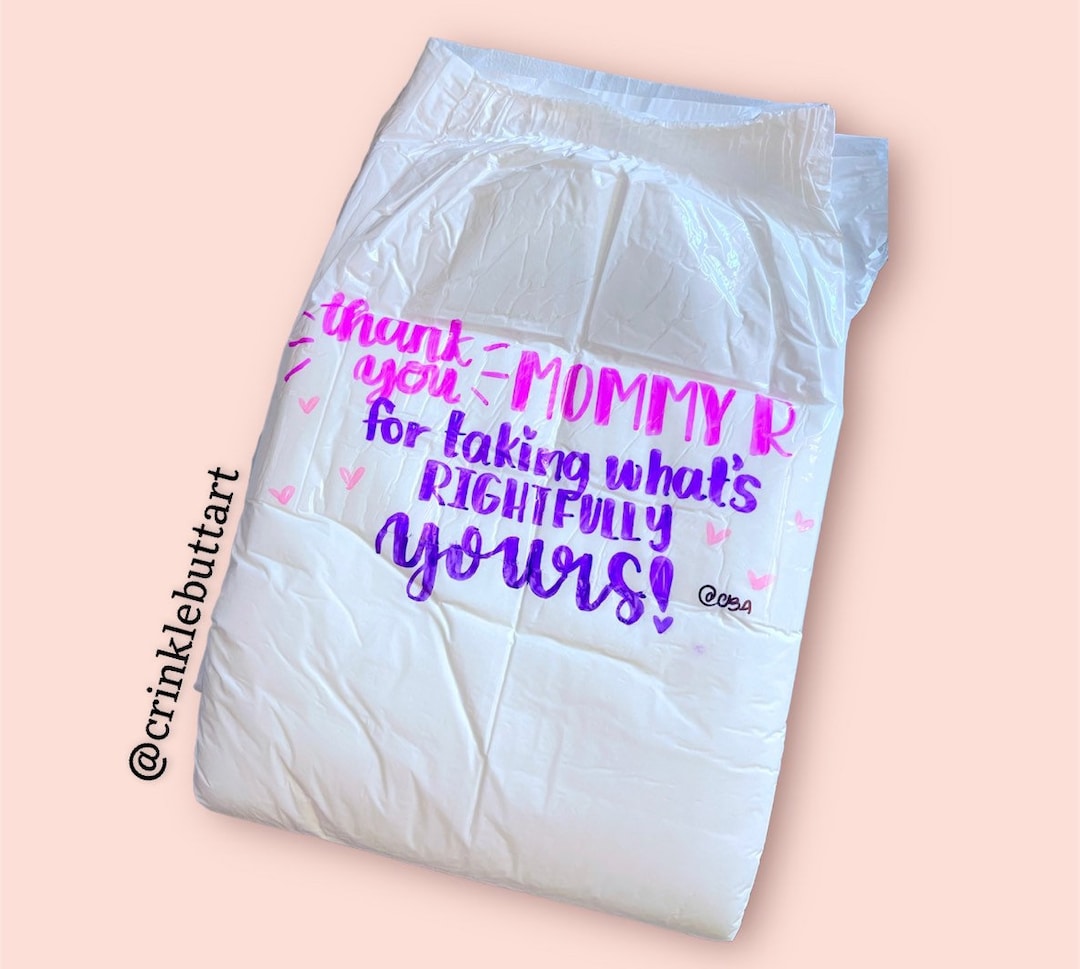 thank
you MOMMY R
for taking what's
RIGHTFULLY
yours!
@CBA
@crinklebuttart